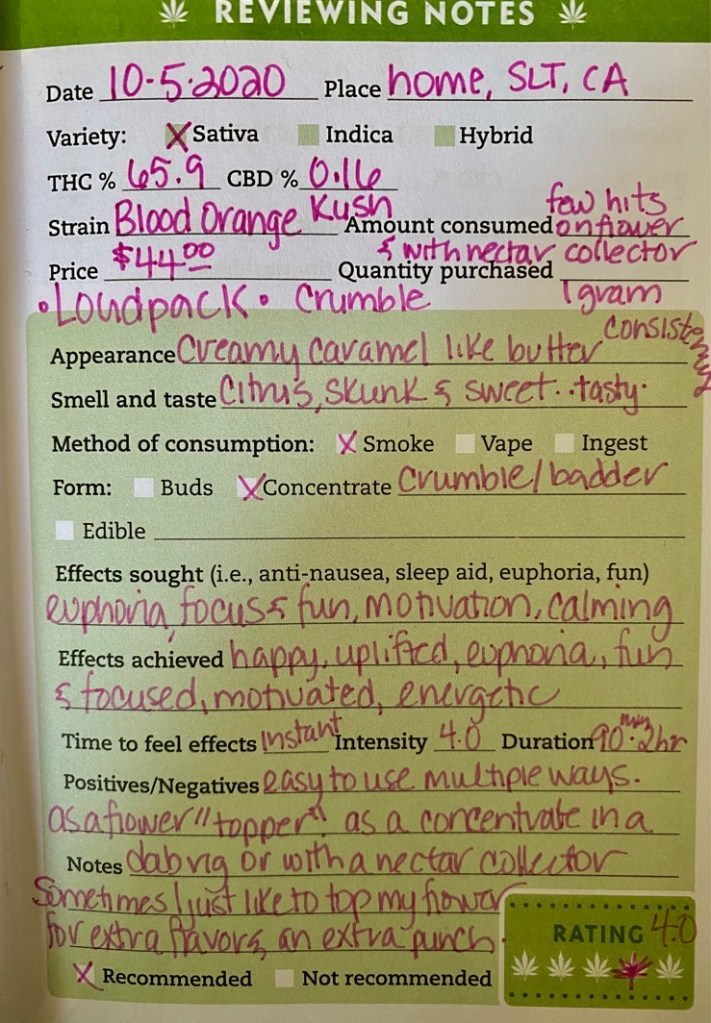 REVIEWING NOTES
Date 10-5-2020 Place home, SLT, CA
Variety: Sativa Indica Hybrid
THC % 65.9 CBD % 0.16
Strain Blood Orange Kush Amount consumed few hits on flower & with nectar collector
Price $44.00 Quantity purchased 1 gram
• Loudpack • Crumble
Appearance Creamy caramel like butter consistency
Smell and taste Citrus, skunk & sweet.. tasty.
Method of consumption: X Smoke Vape Ingest
Form: Buds X Concentrate Crumble/badder
Edible
Effects sought (i.e., anti-nausea, sleep aid, euphoria, fun)
euphoria, focus & fun, motivation, calming
Effects achieved happy, uplifted, euphoria, fun
& focused, motivated, energetic
Time to feel effects instant Intensity 4.0 Duration 90 min - 2hr
Positives/Negatives easy to use multiple ways.
as a flower "topper" as a concentrate in a
Notes dab rig or with a nectar collector
Sometimes I just like to top my flower
for extra flavor & an extra punch.
RATING 4.0
X Recommended Not recommended